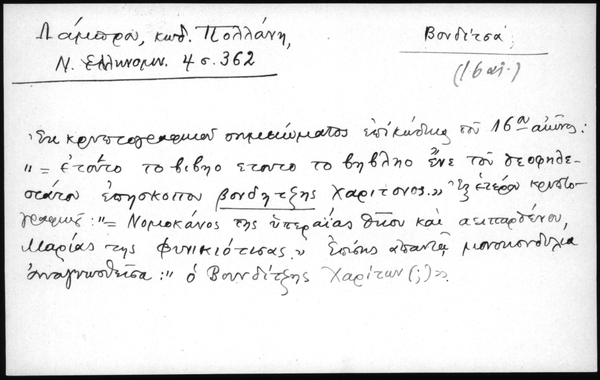 Λάμπρου, κωδ. Πολλάνη,
Ν. Ελληνομν. 4 σ. 362
Βονδίτσα;
(16 αἰ.)
Ἐκ κρυπτογραφικοῦ σημειώματος ἐπὶ κώδικος τοῦ 16ου αἰῶνος:
"= ἐτοῦτο το βιβηο ετουτο το βηβληο ἔνε τοῦ θεοφηλε-
στάτου ἐπησκοπου βονδητζης Χαρίτονος." Ἐξ ἑτέρου κρυπτο-
γραφικοῦ: "= Νομοκάνος της ὑπεραίας θκου και αειπαρθένου,
Μαρίας της Φυνικιότισας." Ἐπίσης ἀπαντᾷ μονοκονδυλια
ἀναγνωσθεῖσα: "ὁ Βουνδίτζης Χαρίτων (;)".